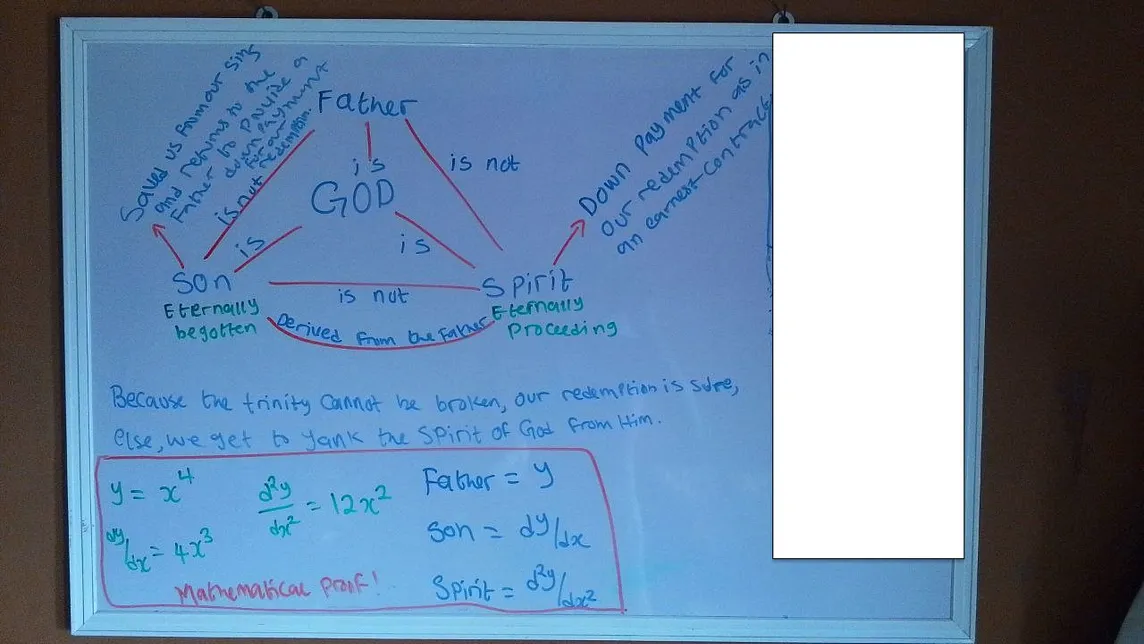 Saved us from our sins
and returns to the
Father to provide a
down payment
for our
redemption.
Father
is not
is
is not
GOD
is
is
Son
is not
Spirit
Eternally
begotten
Derived from the Father
Eternally
Proceeding
Down Payment for
our redemption as in
an earnest-contract
Because the trinity cannot be broken, our redemption is sure,
else, we get to yank the Spirit of God from Him.
y = x⁴
d²y/dx² = 12x²
Father = y
dy/dx = 4x³
Son = dy/dx
Mathematical Proof!
Spirit = d²y/dx²